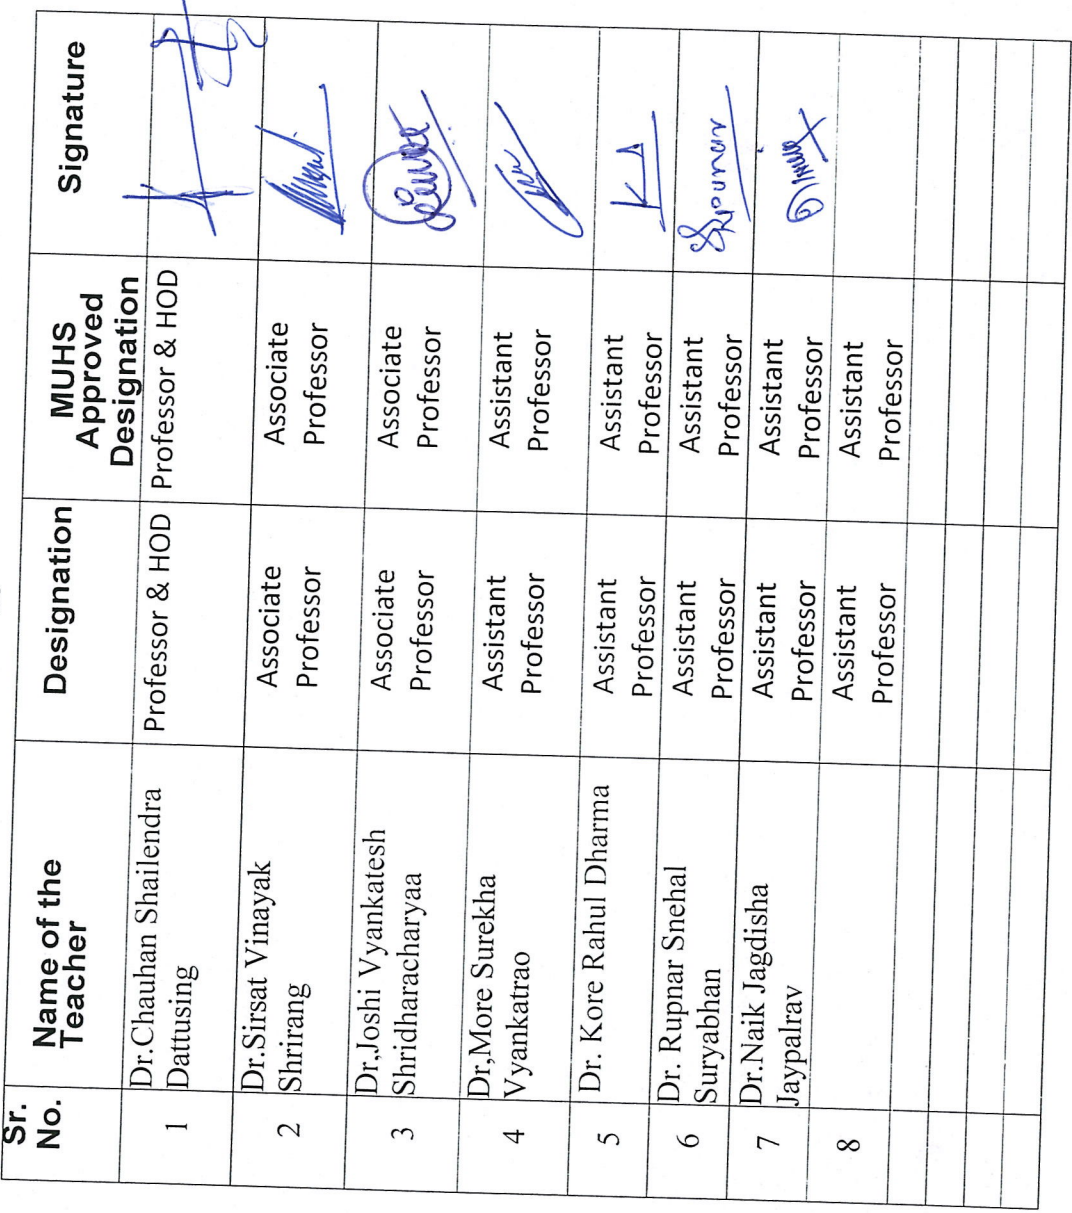 Sr.
No.
Name of the
Teacher
Designation
MUHS
Approved
Designation
Signature
1
Dr.Chauhan Shailendra
Dattusing
Professor & HOD
Professor & HOD
2
Dr.Sirsat Vinayak
Shrirang
Associate
Professor
Associate
Professor
3
Dr,Joshi Vyankatesh
Shridharacharyaa
Associate
Professor
Associate
Professor
4
Dr,More Surekha
Vyankatrao
Assistant
Professor
Assistant
Professor
5
Dr. Kore Rahul Dharma
Assistant
Professor
Assistant
Professor
6
Dr. Rupnar Snehal
Suryabhan
Assistant
Professor
Assistant
Professor
SRupnar
7
Dr.Naik Jagdisha
Jaypalrav
Assistant
Professor
Assistant
Professor
8
Assistant
Professor
Assistant
Professor